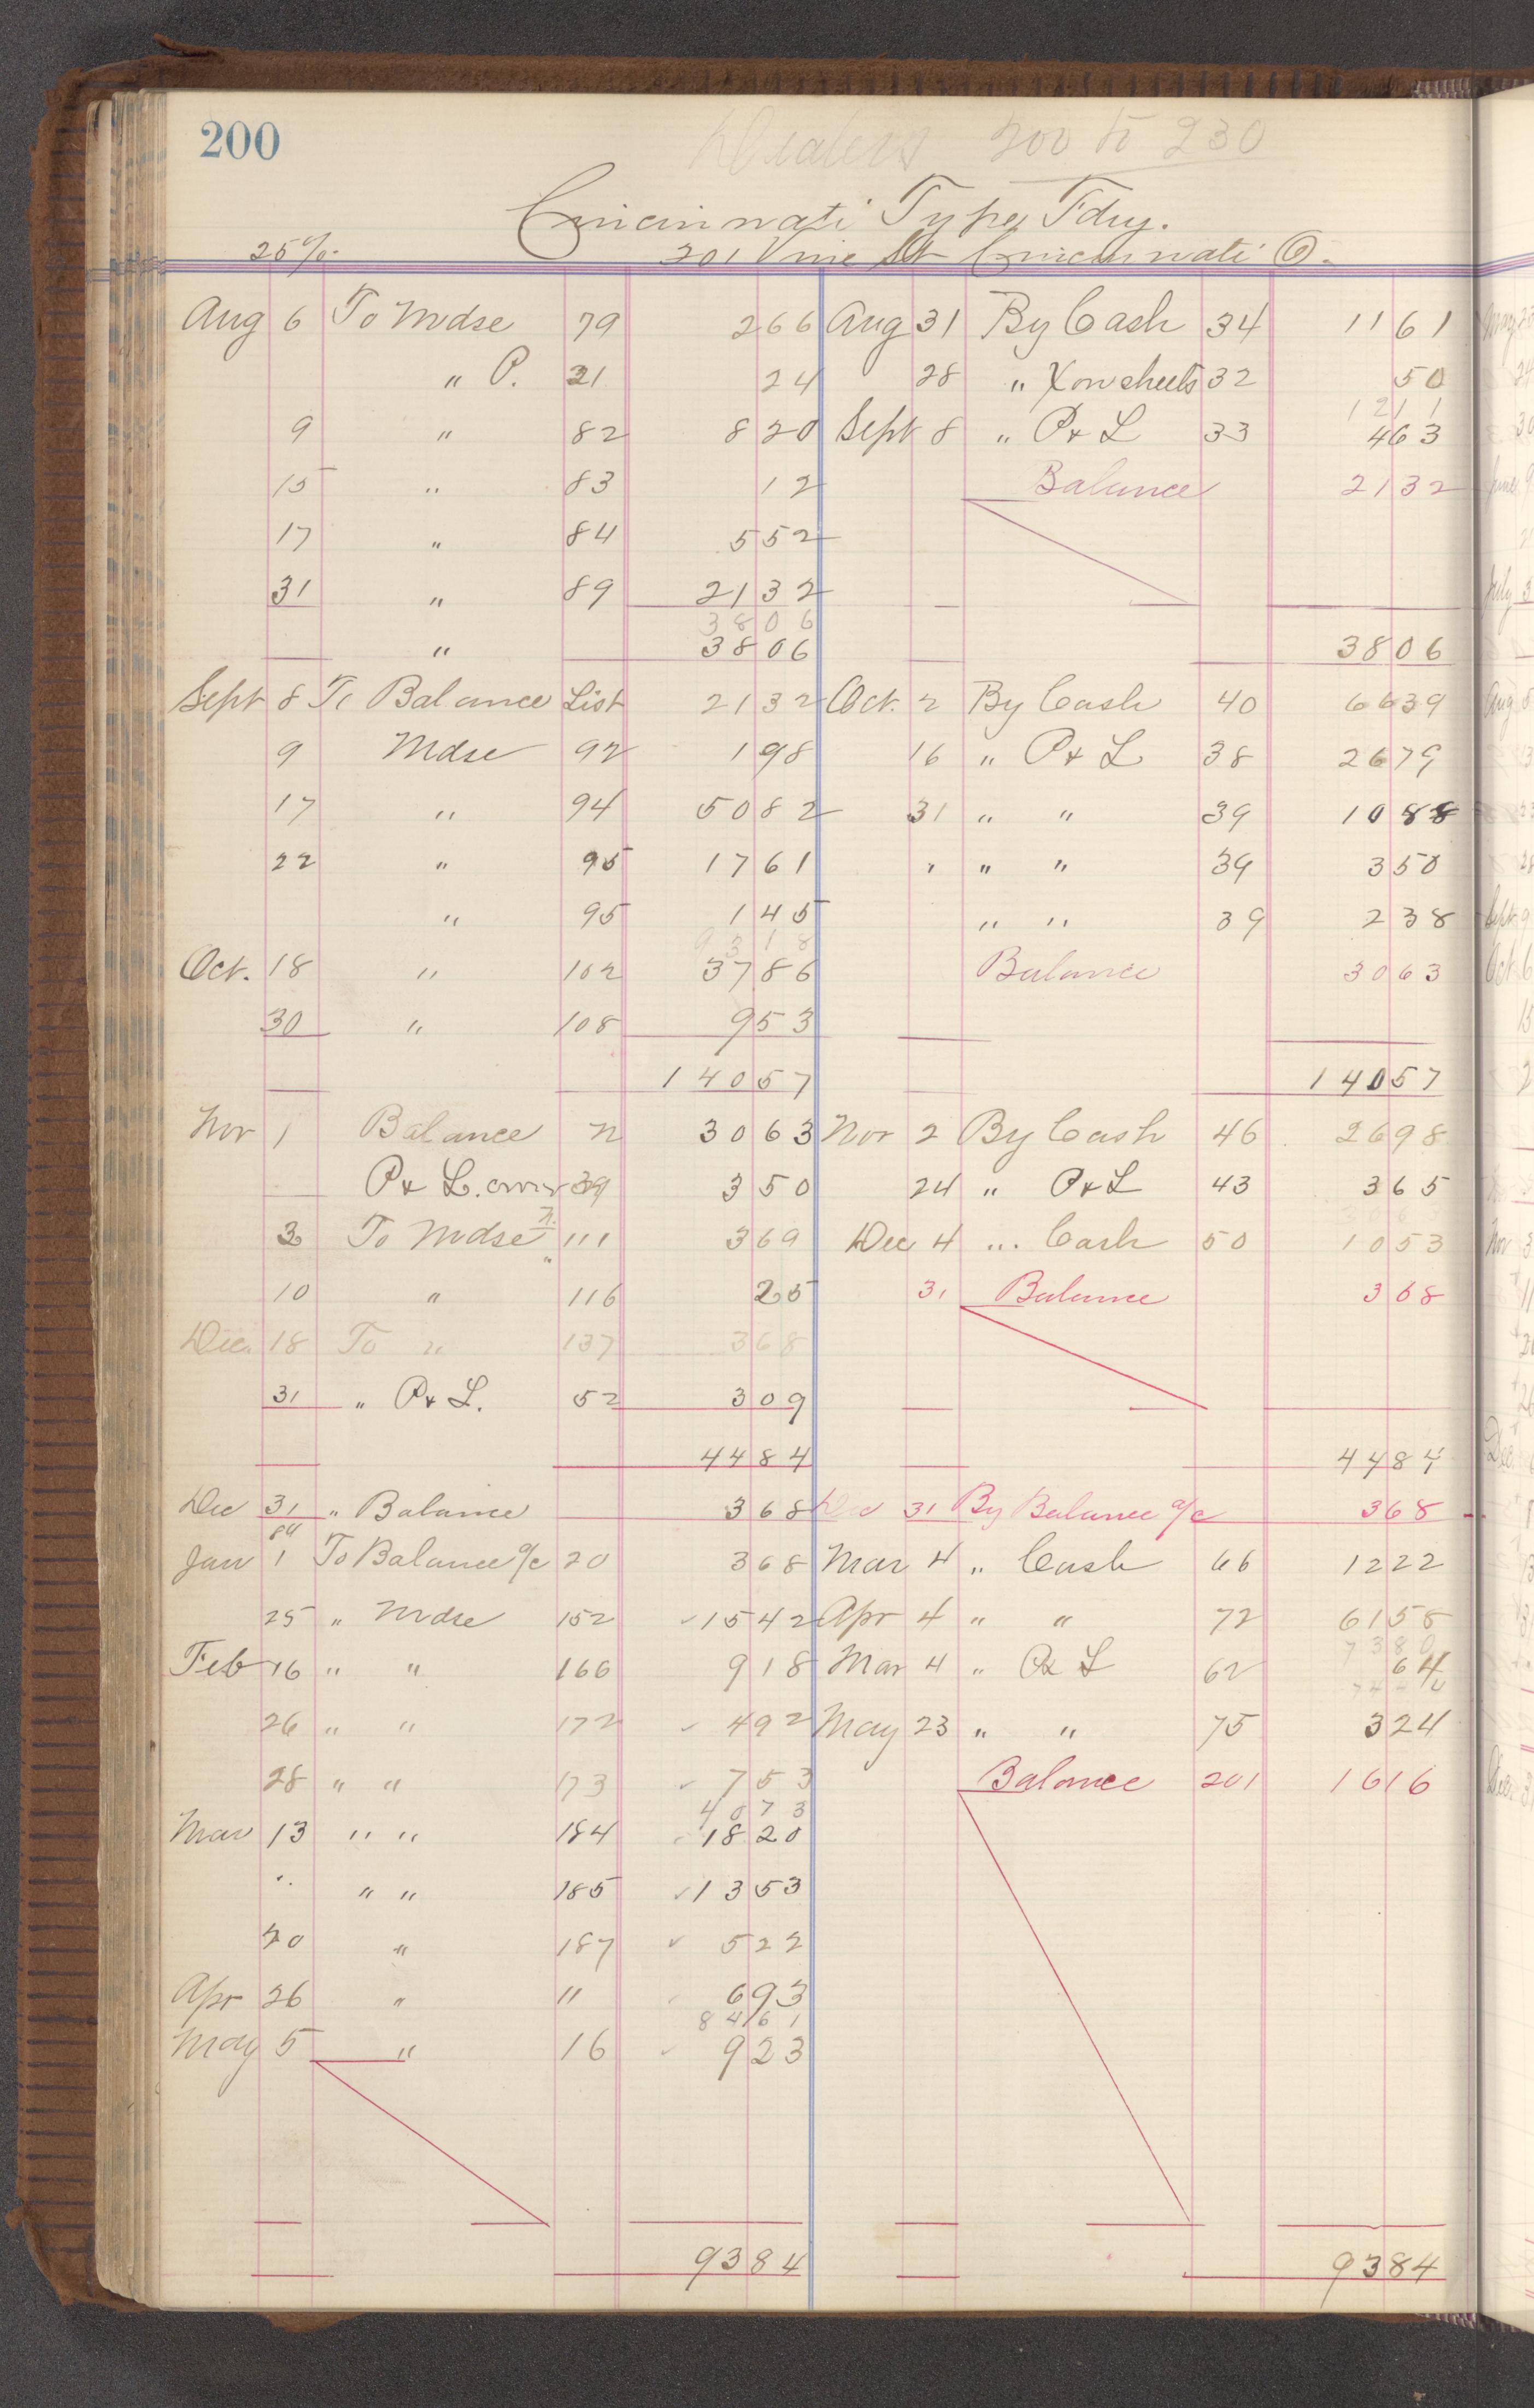 200
Dealers 200 to 230
Cincinnati Type Fdry.
25%. 201 Vine St Cincinnati O.
Aug 6 To Mdse 79 2 66 Aug 31 By Cash 34 11 61
" P. 21 24 28 " 32 50
12 11
9 " 82 8 20 Sept 8 " P & L 33 4 63
15 " 83 12 Balance 21 32
17 " 84 5 52
31 " 89 21 32
38 06
" 38 06 38 06
Sept 8 To Balance List 21 32 Oct. 2 By Cash 40 66 39
9 Mdse 92 1 98 16 " P & L 38 26 79
17 " 94 50 82 31 " " 39 10 88
22 " 95 17 61 " " " 39 3 50
" 95 1 45 " " 39 2 38
93 18
Oct. 18 " 102 37 86 Balance 30 63
30 " 108 9 53
140 57 140 57
Nov 1 Balance 30 63 Nov 2 By Cash 46 26 98
P & L. error 39 3 50 24 " P & L 43 3 65
3 To Mdse 111 3 69 Dec 4 " Cash 50 10 53
10 " 116 25 31 Balance 3 68
Dec. 18 To " 137 3 68
31 " P & L. 52 3 09
44 84 44 84
Dec 31 " Balance 3 68 Dec 31 By Balance a/c 3 68
84
Jan 1 To Balance a/c 20 3 68 Mar 4 " Cash 66 12 22
25 " Mdse 152 ✓ 15 42 Apr 4 " " 72 61 58
73 80
Feb 16 " " 166 9 18 Mar 4 " P & L 62 64
26 " " 172 ✓ 4 92 May 23 " " 75 3 24
28 " " 173 ✓ 7 53 Balance 201 16 16
40 73
Mar 13 " " 184 ✓ 18 20
" " " 185 ✓ 13 53
20 " 187 ✓ 5 22
Apr 26 " " 6 93
84 61
May 5 " 16 ✓ 9 23
93 84 93 84